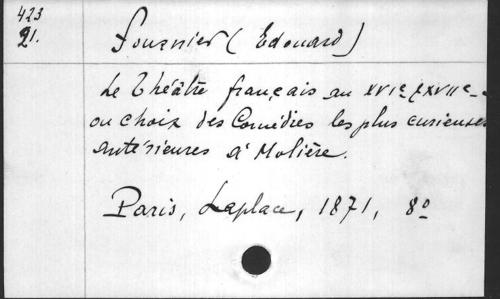 423
21.
Fournier (Edouard)
Le Théâtre français au XVIe & XVIIe
ou choix des Comédies les plus curieuses
antérieures à Molière.
Paris, Laplace, 1871, 8o